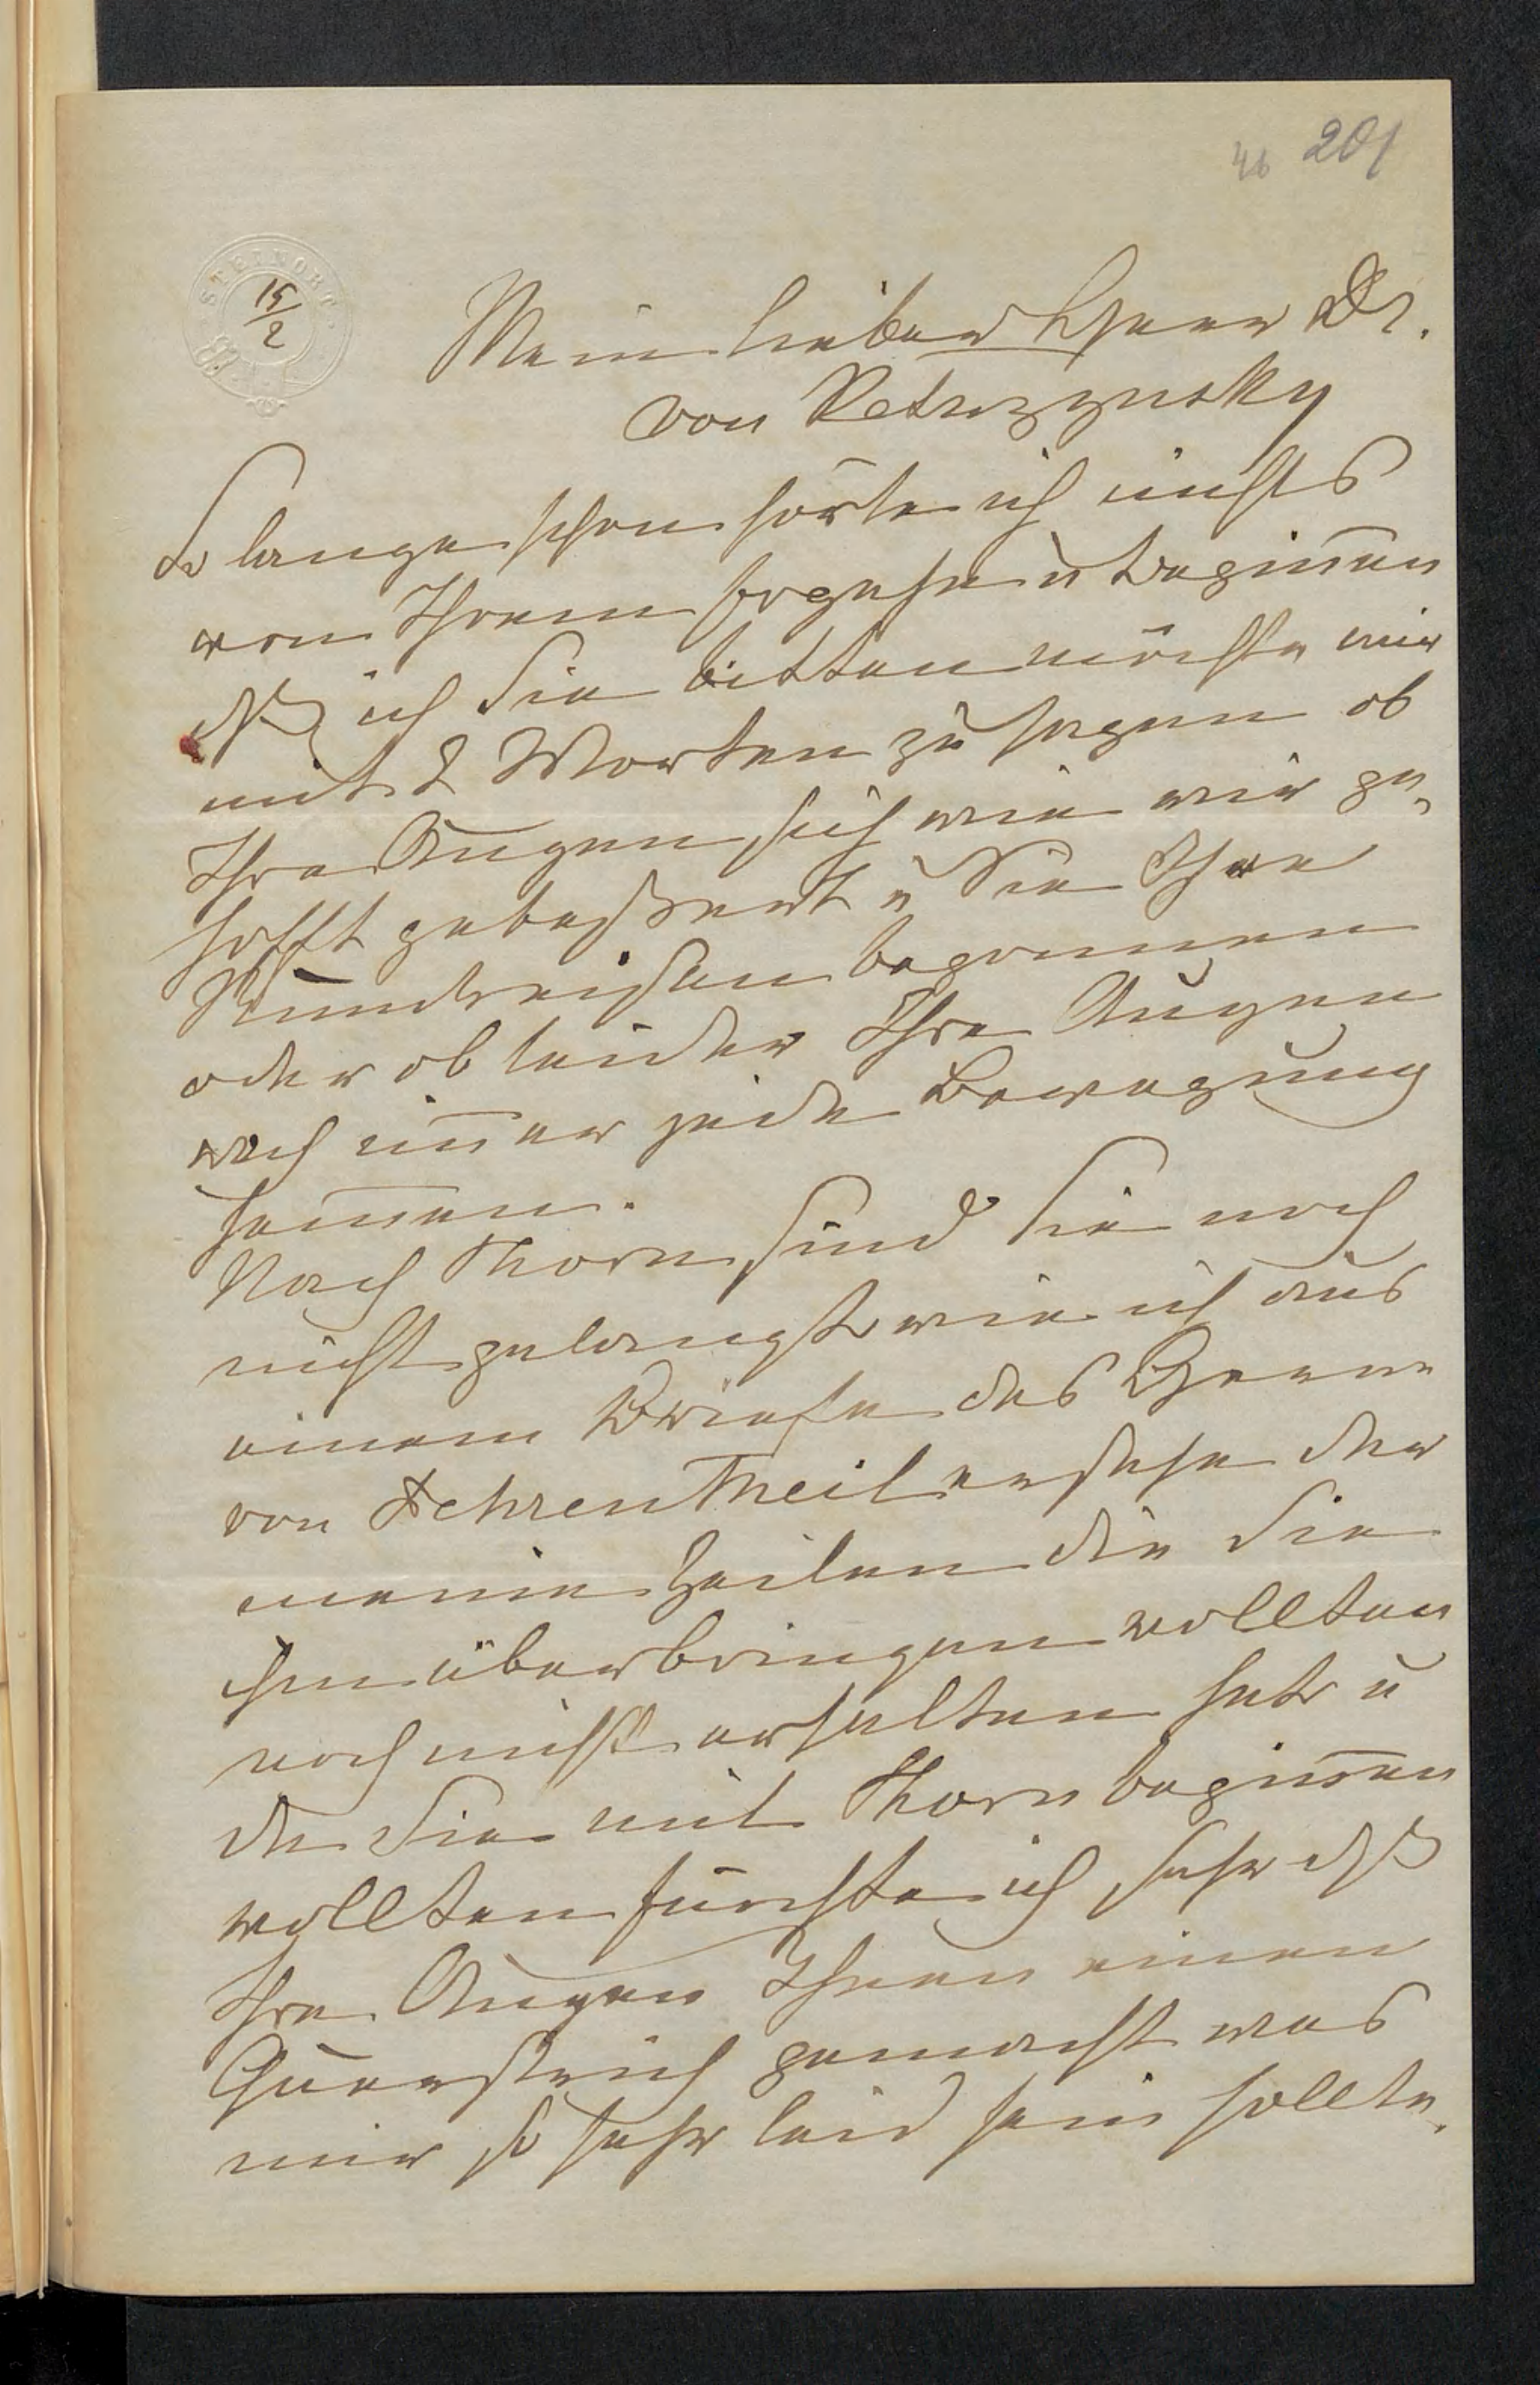 46 201
STEINORT
15/2
Mein lieber Herr Dr.
von Ketrzynsky
So lange schon hörte ich nichts
von Ihrem Ergehn u Beginnen
dß ich Sie bitten möchte mir
mit 2 Worten zu sagen ob
Ihre Augen sich wie wir ge„
hofft gebeßert u Sie Ihre
Rundreisen begonnen
oder ob leider Ihre Augen
noch im̅er jede Bewegung
hem̅en.
Nach Thorn sind Sie noch
nicht gelangt wie ich aus
einem Briefe des Herrn
von Fehrentheil ersehe der
meine Zeilen die Sie
ihm überbringen wollten
noch nicht erhalten hat u
da Sie mit Thorn begin̅en
wollten fürchte ich sehr dß
Ihre Augen Ihnen einen
Querstrich gemacht was
mir so sehr leid sein sollte.